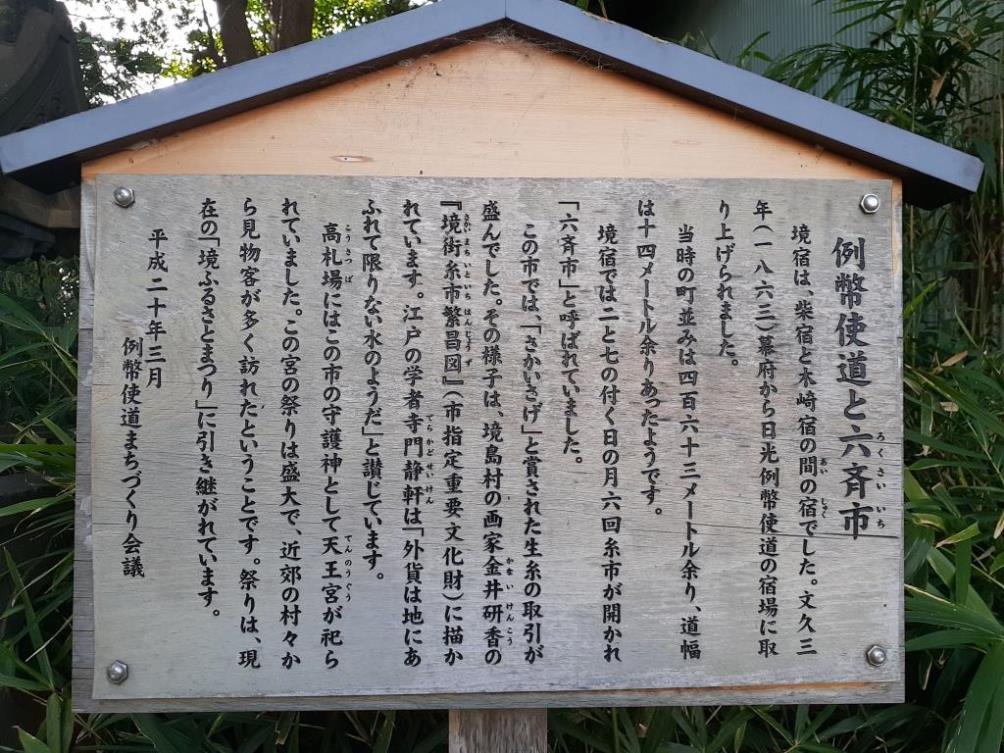 例幣使道と六斉市
境宿は、柴宿と木崎宿の間の宿でした。文久三
年（一八六三）幕府から日光例幣使道の宿場に取
り上げられました。
当時の町並みは四百六十三メートル余り、道幅
は十四メートル余りあったようです。
境宿では二と七の付く日の月六回糸市が開かれ
「六斉市」と呼ばれていました。
この市では、「さかいさげ」と賞された生糸の取引が
盛んでした。その様子は、境島村の画家金井研香の
『境街糸市繁昌図』（市指定重要文化財）に描か
れています。江戸の学者寺門静軒は「外貨は地にあ
ふれて限りない水のようだ」と讃じています。
高札場にはこの市の守護神として天王宮が祀ら
れていました。この宮の祭りは盛大で、近郊の村々か
ら見物客が多く訪れたということです。祭りは、現
在の「境ふるさとまつり」に引き継がれています。
平成二十年三月
例幣使道まちづくり会議